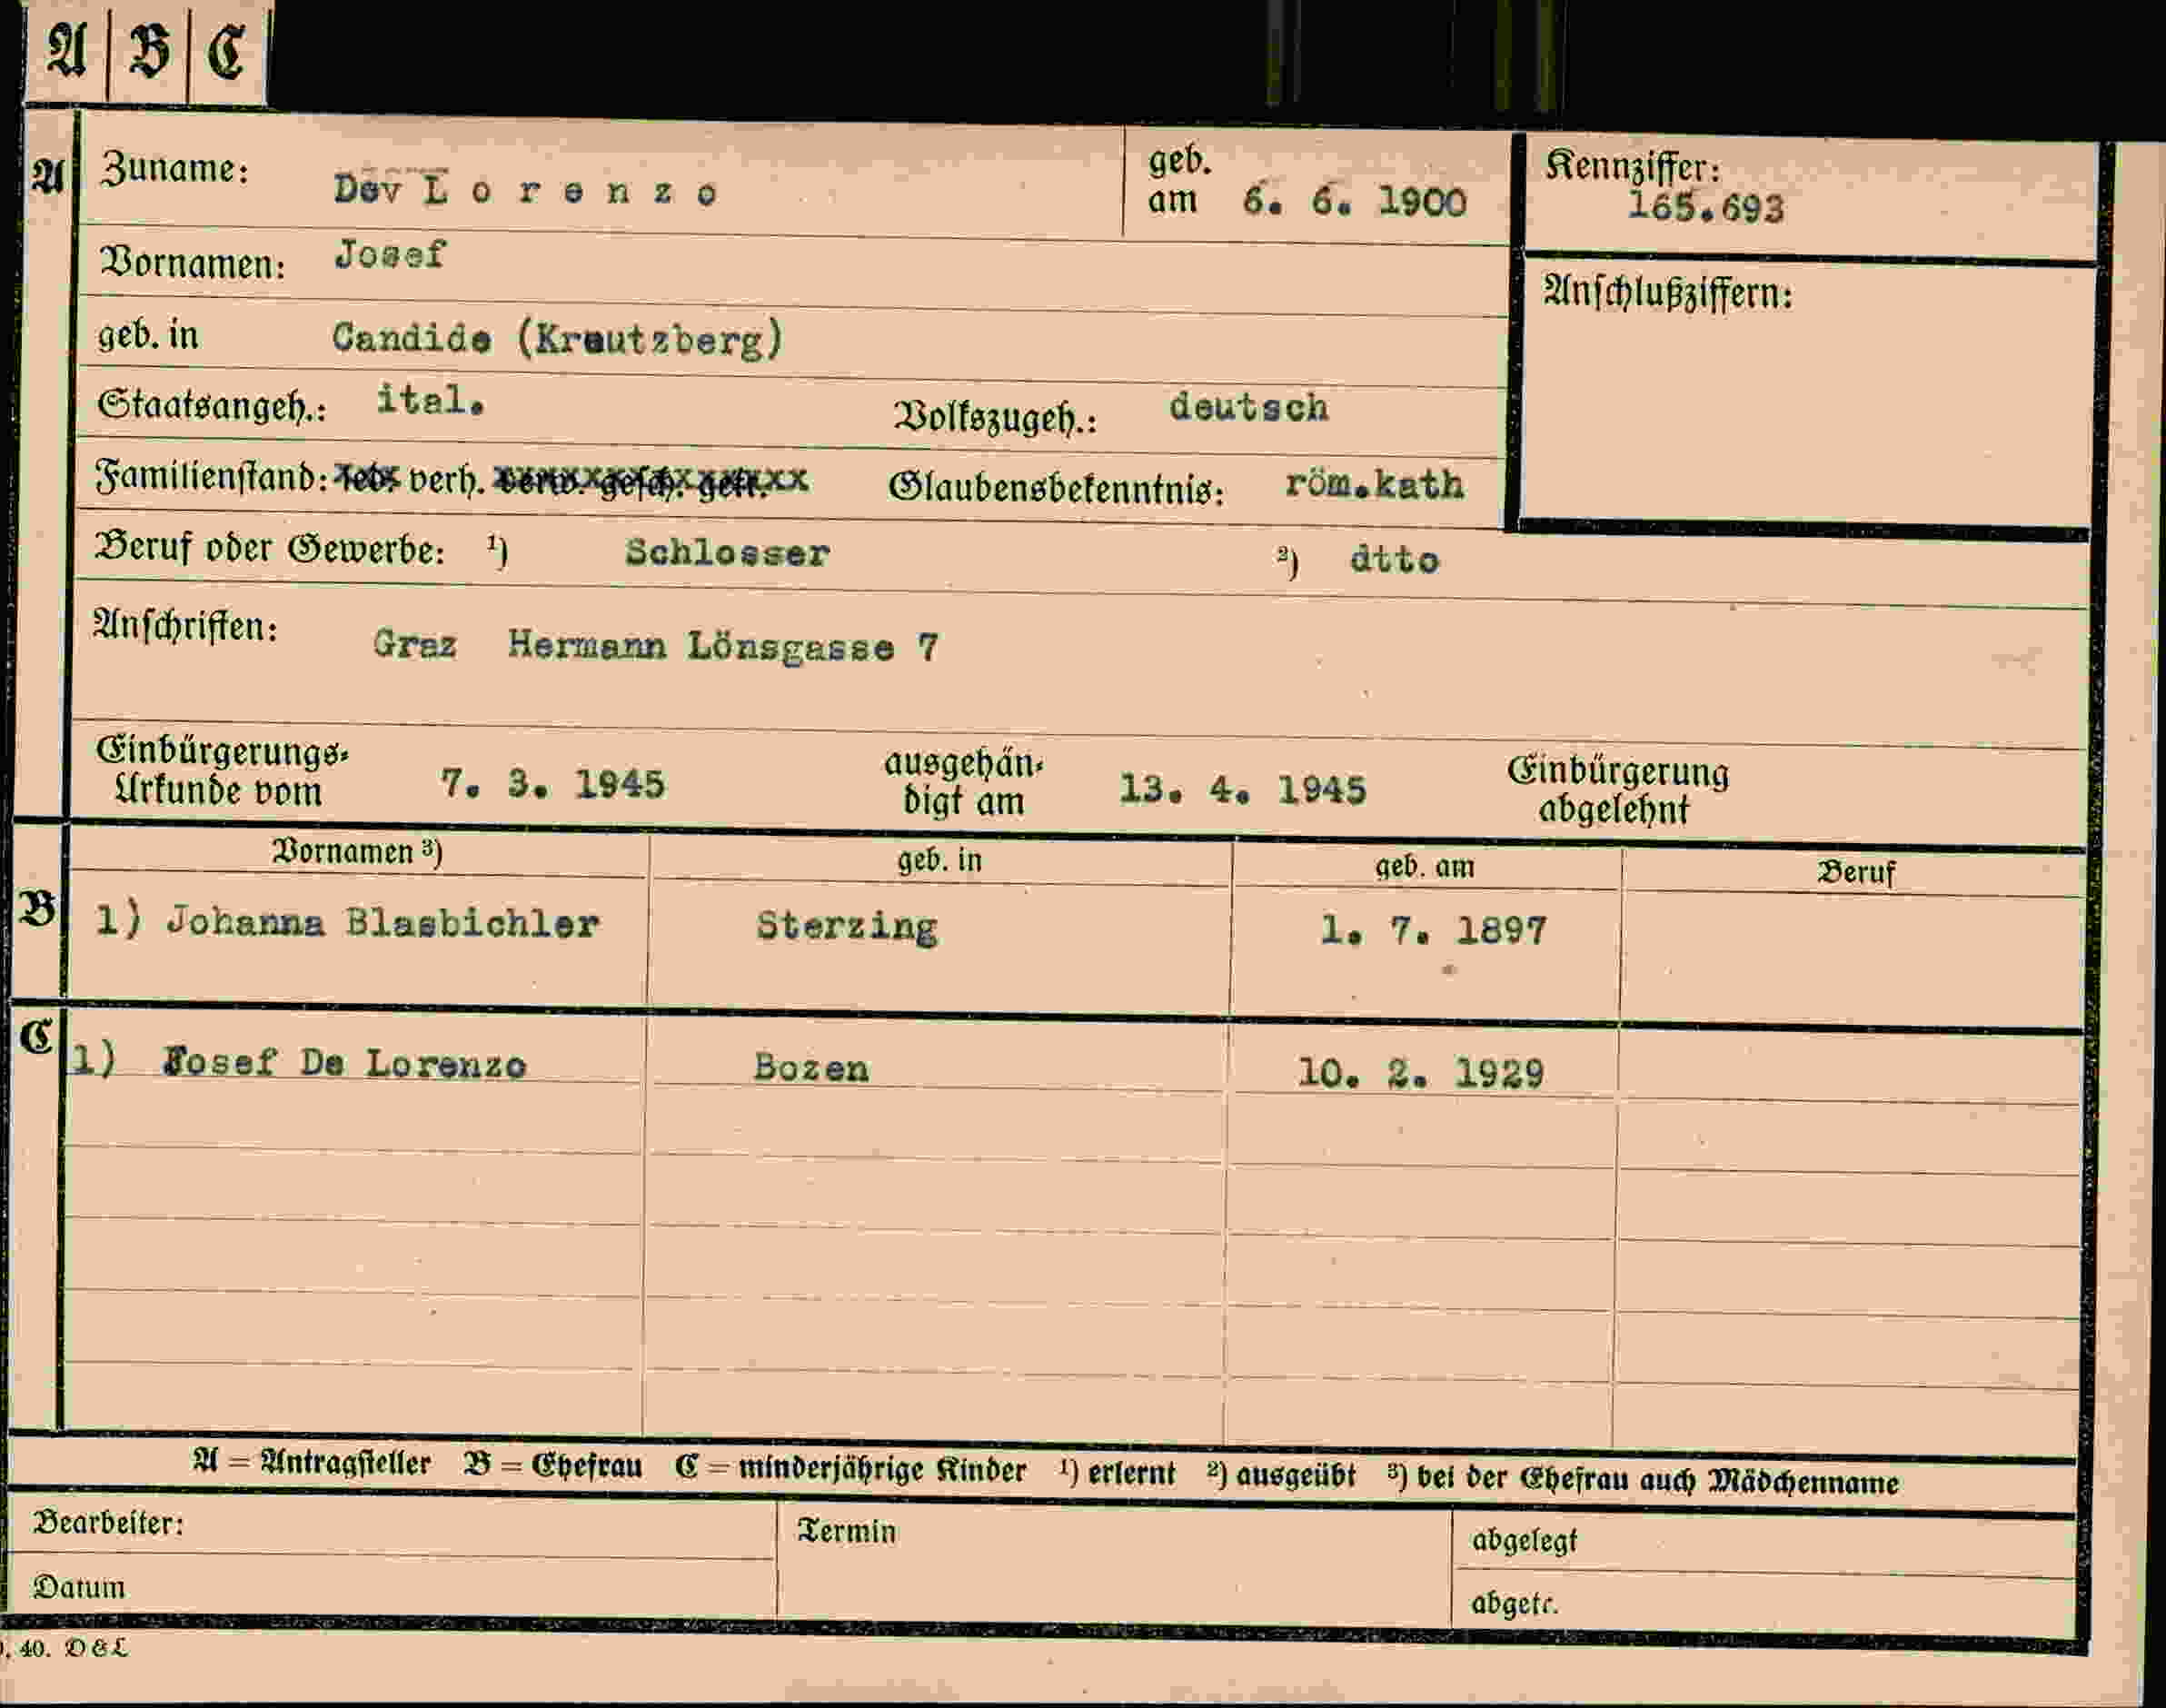 A B C
A Zuname: De L o r e n z o geb. am 6. 6. 1900 Kennziffer: 165.693
Vornamen: Josef
Anschlußziffern:
geb. in Candide (Kreutzberg)
Staatsangeh.: ital. Volkszugeh.: deutsch
Familienstand: led. verh. verw. gesch. getr. Glaubensbekenntnis: röm.kath
Beruf oder Gewerbe: ¹) Schlosser ²) dtto
Anschriften: Graz Hermann Lönsgasse 7
Einbürgerungs- ausgehän- Einbürgerung
Urkunde vom 7. 3. 1945 digt am 13. 4. 1945 abgelehnt
Vornamen ³) geb. in geb. am Beruf
B 1) Johanna Blasbichler Sterzing 1. 7. 1897
C 1) Josef De Lorenzo Bozen 10. 2. 1929
A = Antragsteller B = Ehefrau C = minderjährige Kinder ¹) erlernt ²) ausgeübt ³) bei der Ehefrau auch Mädchenname
Bearbeiter: Termin abgelegt
Datum abgetr.
40. D & L